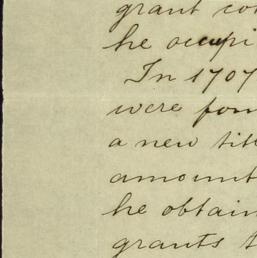 grant co
he occupi
In 1707
were fou
a new tit
amount
he obtain
grants t